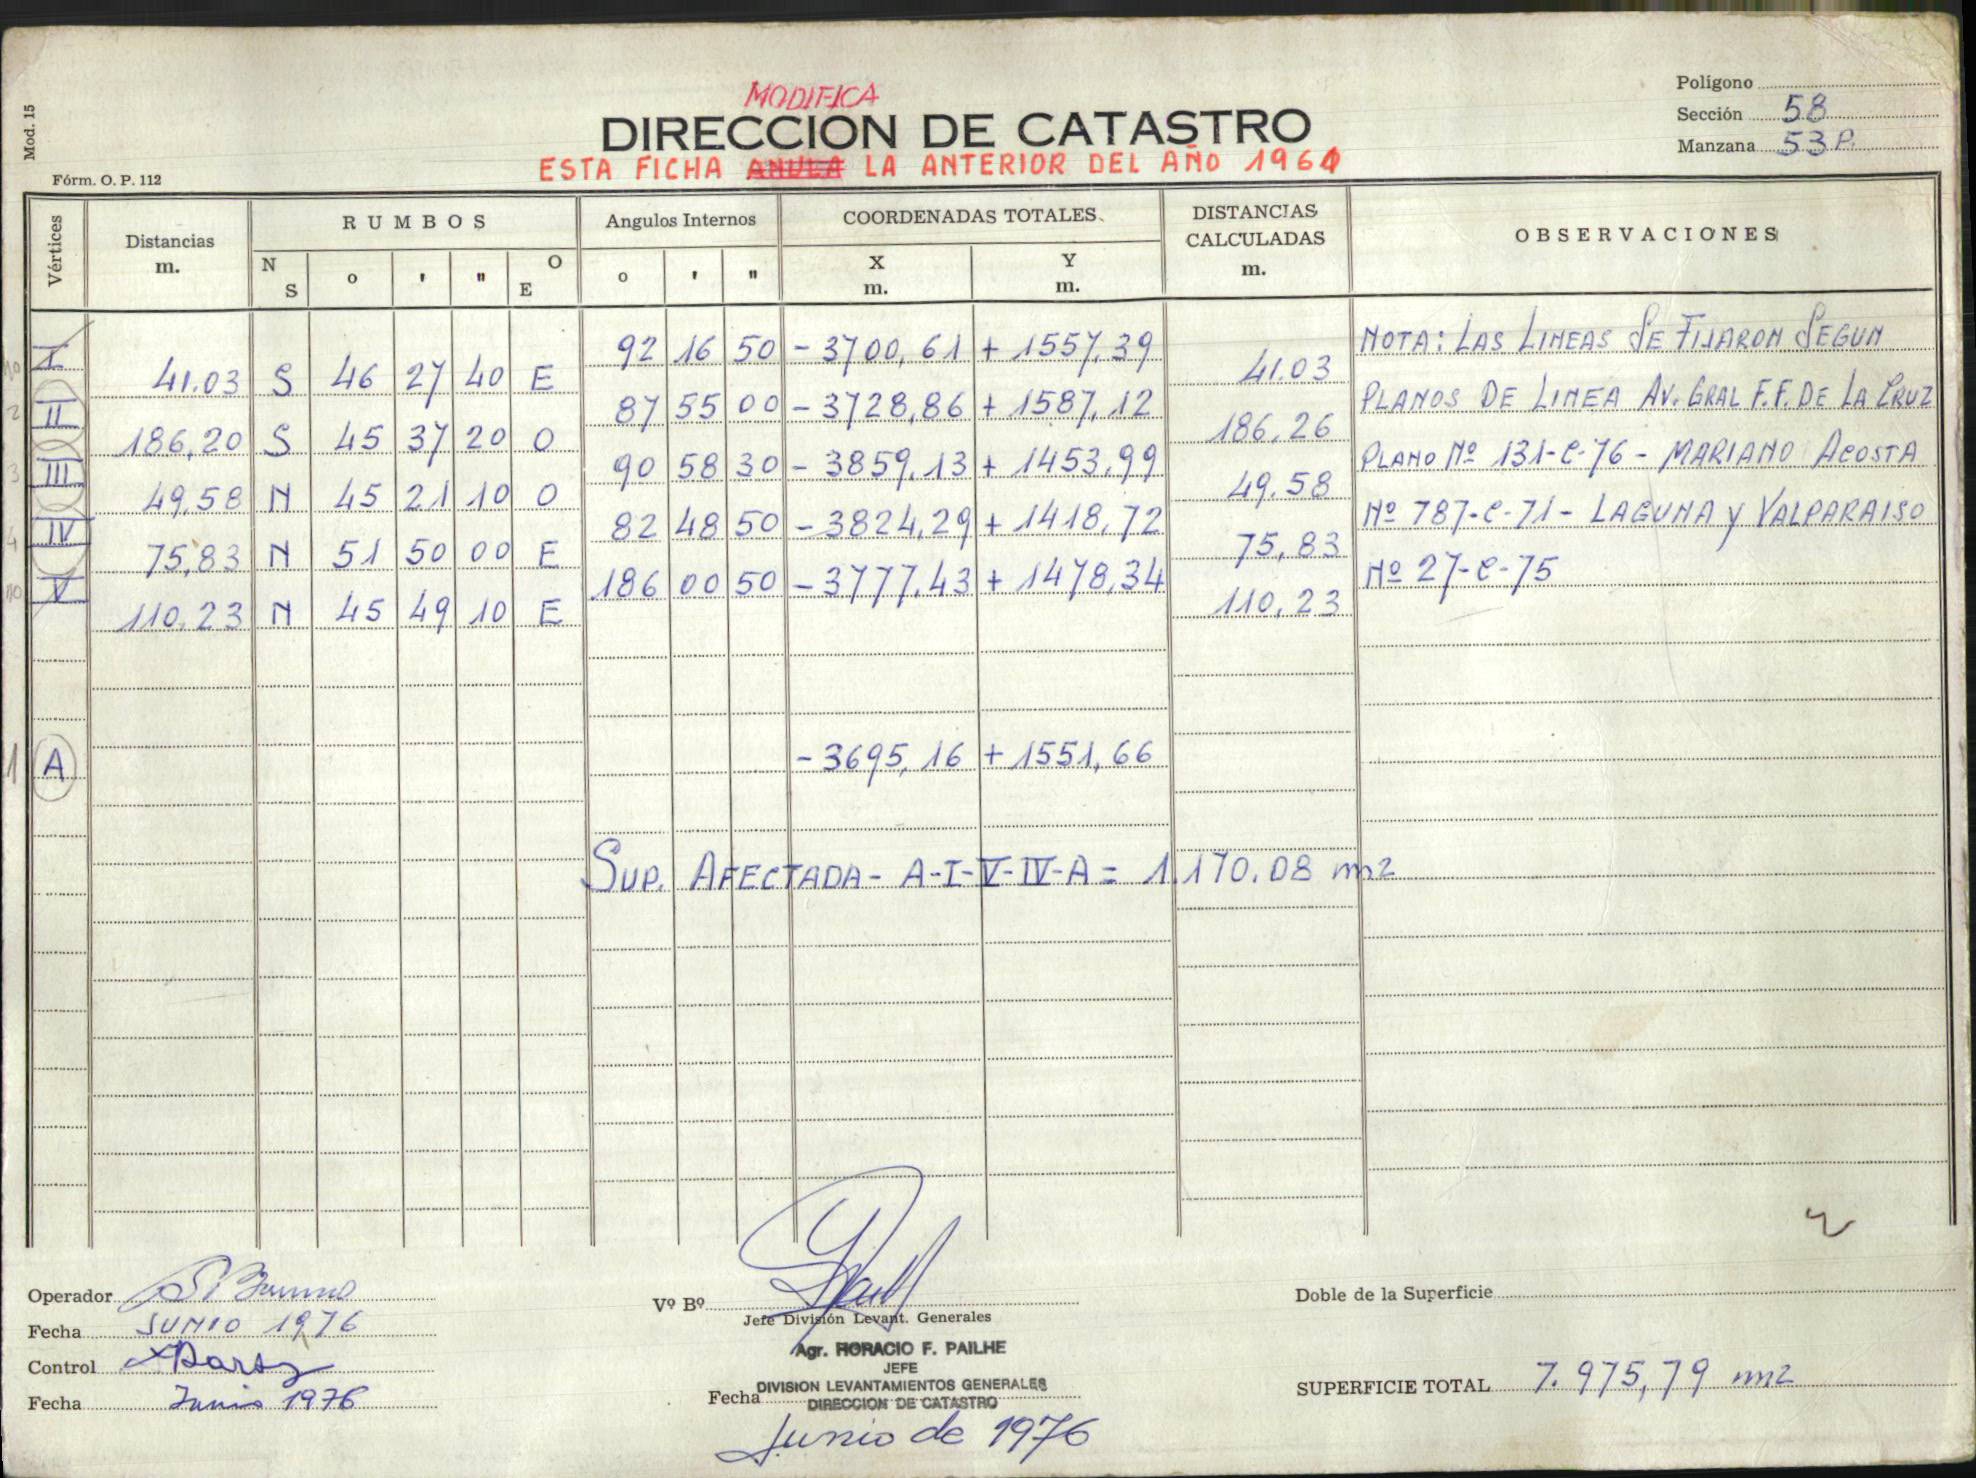 Mod. 15
MODIFICA
DIRECCION DE CATASTRO
ESTA FICHA ANULA LA ANTERIOR DEL AÑO 1961
Polígono
Sección 58
Manzana 53 P.
Fórm. O. P. 112
Vértices
Distancias m.
RUMBOS
N S o ' " O E
Angulos Internos
o ' "
COORDENADAS TOTALES
X m. Y m.
DISTANCIAS CALCULADAS m.
OBSERVACIONES
I 92 16 50 - 3700,61 + 1557,39
41.03 S 46 27 40 E 41.03
II 87 55 00 - 3728,86 + 1587,12
186,20 S 45 37 20 O 186,26
III 90 58 30 - 3859,13 + 1453,99
49,58 N 45 21 10 O 49,58
IV 82 48 50 - 3824,29 + 1418,72
75,83 N 51 50 00 E 75,83
V 186 00 50 - 3777,43 + 1478,34
110,23 N 45 49 10 E 110,23
NOTA: LAS LINEAS SE FIJARON SEGUN
PLANOS DE LINEA AV. GRAL F.F. DE LA CRUZ
PLANO Nº 131-C-76 - MARIANO ACOSTA
Nº 787-C-71 - LAGUNA Y VALPARAISO
Nº 27-C-75
1 A - 3695,16 + 1551,66
SUP. AFECTADA - A-I-V-IV-A = 1.170.08 m2
Operador
Fecha JUNIO 1976
Control
Fecha Junio 1976
Vº Bº
Jefe División Levant. Generales
Agr. HORACIO F. PAILHE
JEFE
DIVISION LEVANTAMIENTOS GENERALES
DIRECCION DE CATASTRO
Fecha
Junio de 1976
Doble de la Superficie
SUPERFICIE TOTAL 7.975,79 m2